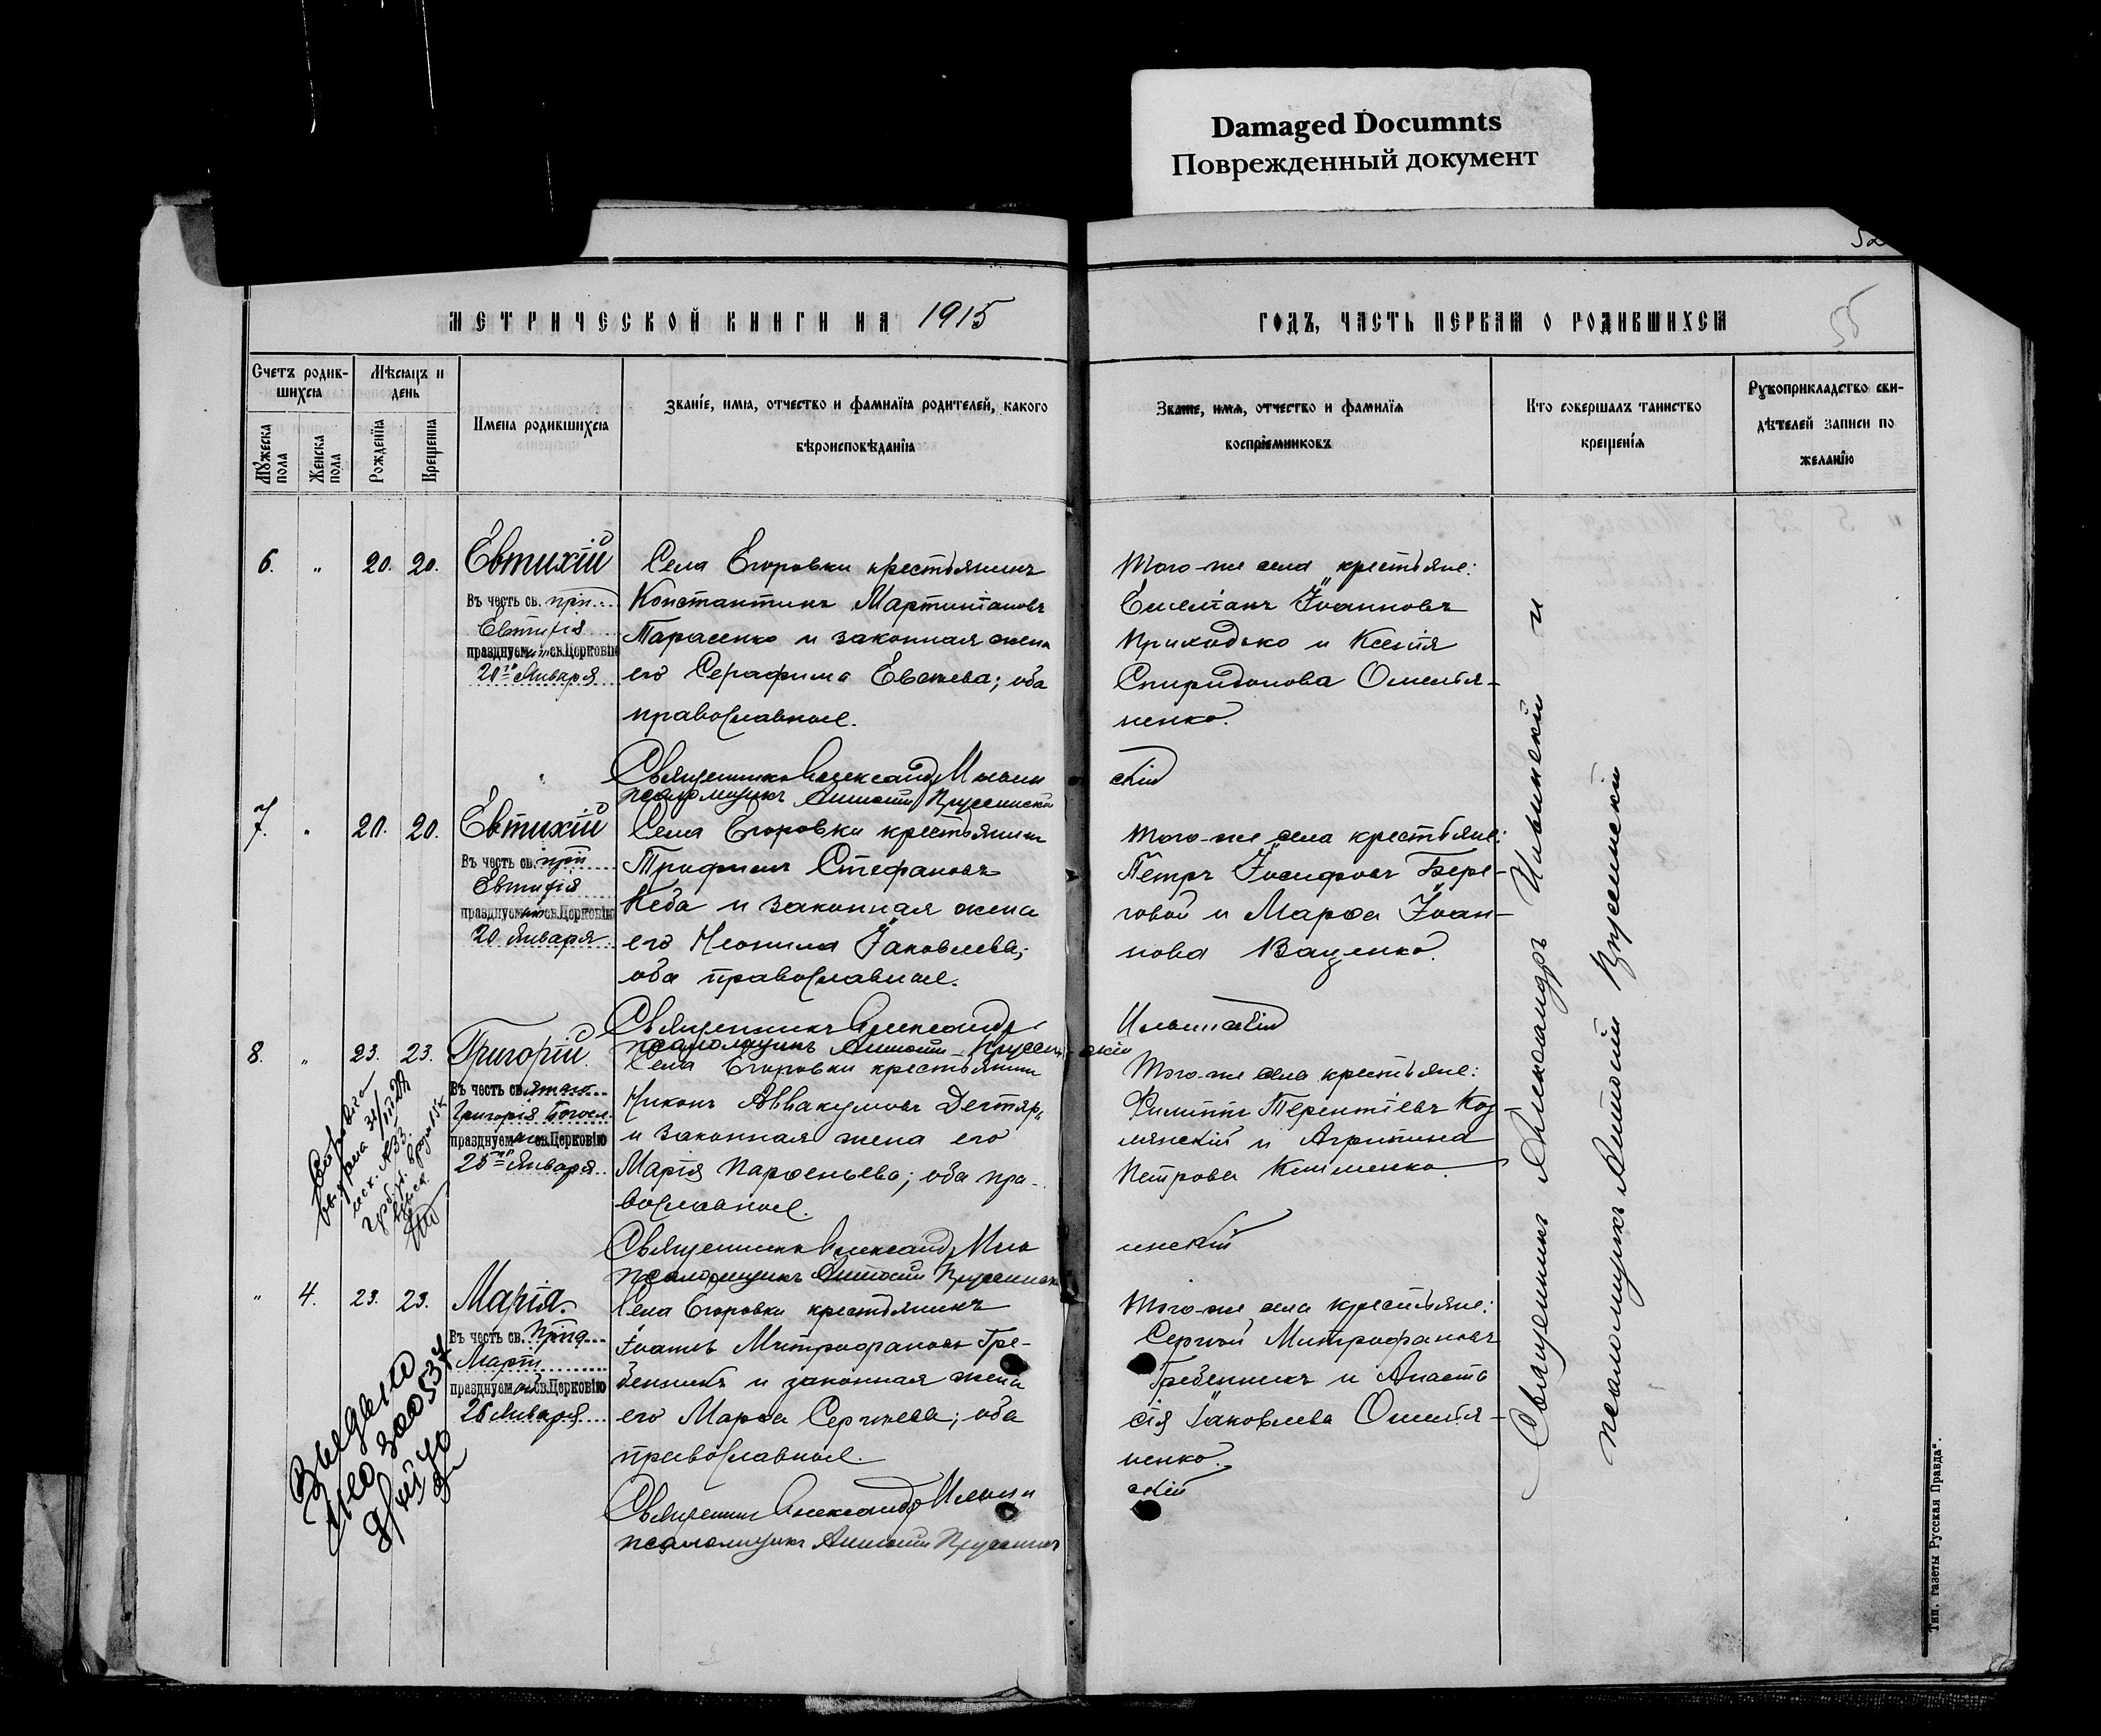 Damaged Documnts
Поврежденный документ
52
55
МЕТРИЧЕСКОЙ КНИГИ НА 1915
ГОДЪ, ЧАСТЬ ПЕРВАЯ О РОДИВШИХСЯ
Счетъ родив-
шихся
Мѣсяцъ и
день
Мужеска
пола
Женска
пола
Рожденія
Крещенія
Имена родившихся
Званіе, имя, отчество и фамилія родителей, какого
вѣроисповѣданія
Званіе, имя, отчество и фамилія
воспріемниковъ
Кто совершалъ таинство
крещенія
Рукоприкладство сви-
дѣтелей записи по
желанію
6. " 20. 20. Евтихій
Въ честь св. прп.
Евтихія
празднуем св. Церковію
20го Января
Села Егоровки крестьянинъ
Константинъ Мартиніановъ
Тарасенко и законная жена
его Серафима ; оба
православные.
Того-же села крестьяне:
Іоанновъ
Приходько и Ксенія
Спиридонова Омелья-
ненко.
Священникъ Александръ Ильин
скій
псаломщикъ Антоній
7. " 20. 20. Евтихій
Въ честь св. прп
Евтихія
празднуем св. Церковію
20 Января
Села Егоровки крестьянинъ
Трофимъ Стефановъ
и законная жена
его Неонила Іаковлева;
оба православные.
Того-же села крестьяне:
Петръ Іосифовъ Бере-
говой и Марфа Іоан-
нова Ващенко.
Священникъ Александръ
Ильинскій
псаломщикъ Антоній
8. " 23. 23. Григорій
Въ честь святаго
Григорія Богосл.
празднуем св. Церковію
25го Января
Села Егоровки крестьянинъ
Никонъ Аввакумовъ Дегтяр.
и законная жена его
Марія Парфеньева; оба пра-
вославные.
Того-же села крестьяне:
Филиппъ Терентіевъ Коз
лянскій и Агрипина
Петрова Клименко
выдана
Священникъ Александръ Иль
инскій
псаломщикъ Антоній
" 4. 23. 23. Марія.
Въ честь св. прпд
Маріи
празднуем св. Церковію
26 Января
Села Егоровки крестьянинъ
Іоаннъ Митрофановъ Гре-
бенникъ и законная жена
его Марфа Сергіева; оба
православные.
Того-же села крестьяне:
Сергій Митрофановъ
Гребенникъ и Анаста
сія Іаковлева Омелья-
ненко.
Священникъ Александръ Ильин
скій
псаломщикъ Антоній
Священникъ Александръ Ильинскій и
псаломщикъ Антоній
Тип. газеты Русская Правда“.